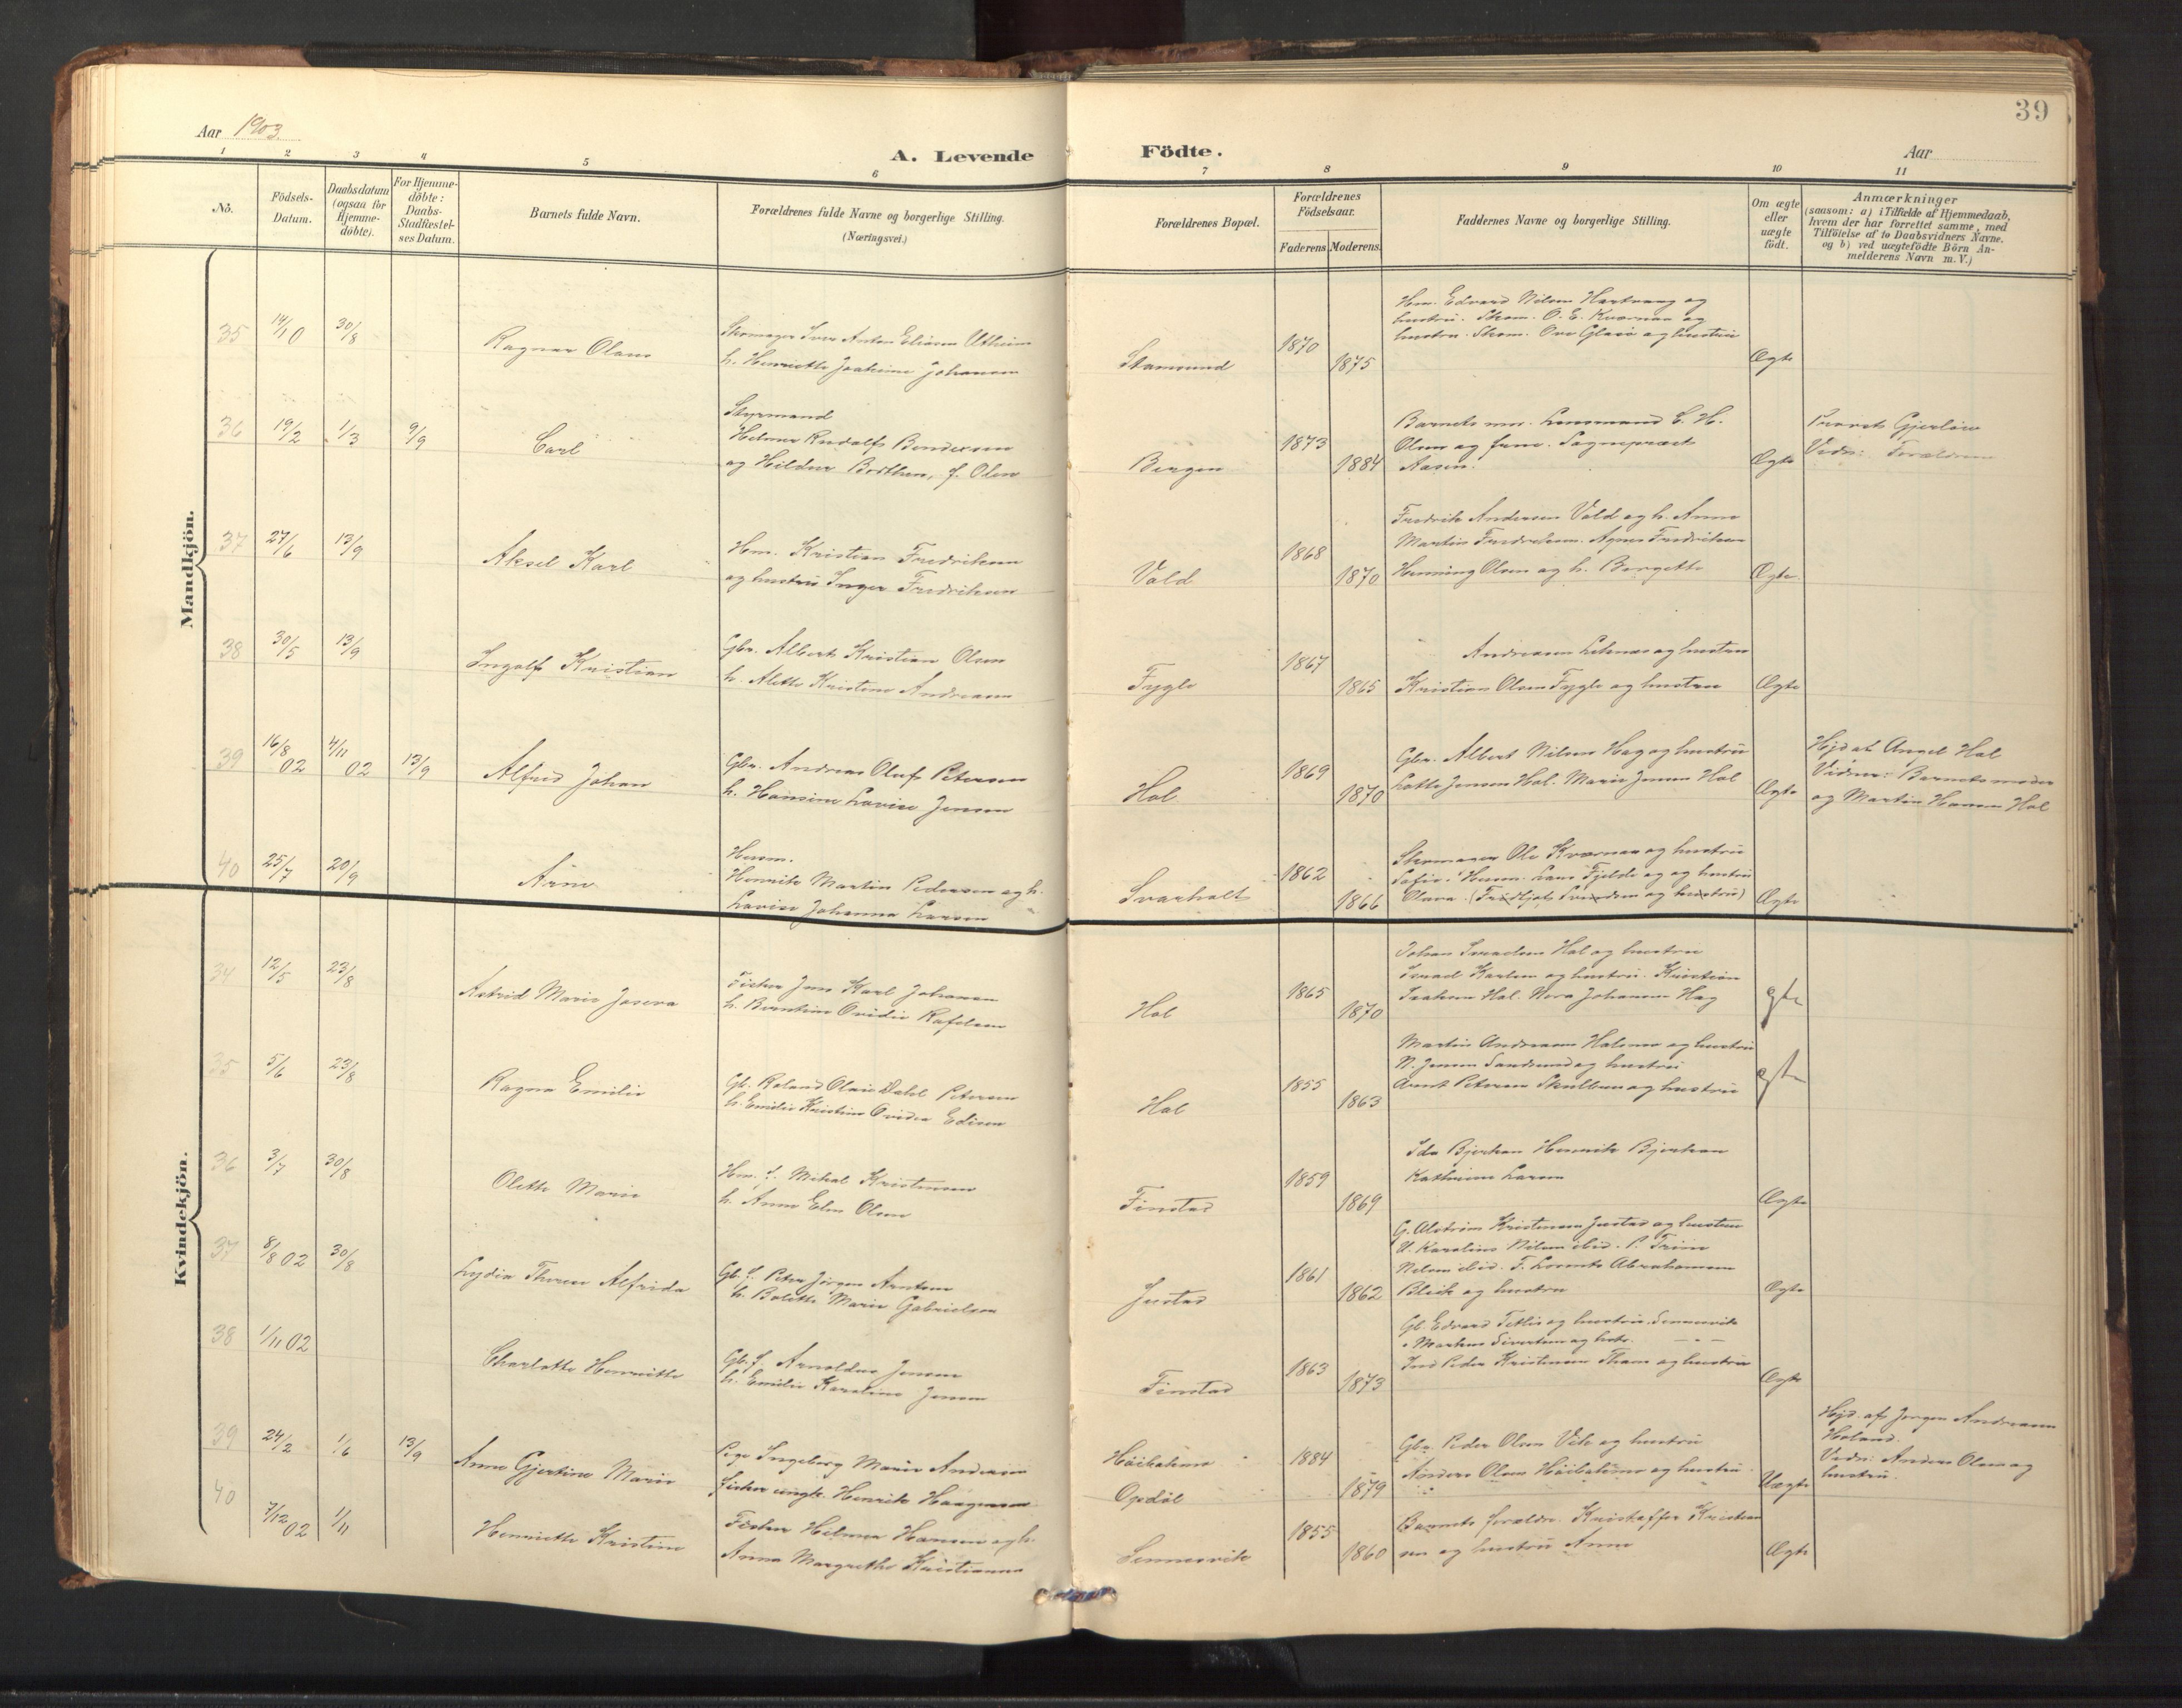 39
Aar 1903.
A. Levende
Födte.
Aar
1 2 3 4 5 6 7 8 9 10 11
No.
Födsels-
Datum.
Daabsdatum
(ogsaa for
Hjemme-
döbte).
For Hjemme-
döbte:
Daabs-
Stadfæstel-
ses Datum.
Barnets fulde Navn.
Forældrenes fulde Navne og borgerlige Stilling.
(Næringsvei.)
Forældrenes Bopæl.
Forældrenes
Födselsaar.
Faderens. Moderens.
Faddernes Navne og borgerlige Stilling.
Om ægte
eller
uægte
födt.
Anmærkninger
(saasom: a) i Tilfælde af Hjemmedaab,
hvem der har forrettet samme, med
Tilföielse af to Daabsvidners Navne.
og b) ved uægtefödte Börn An-
melderens Navn m. V.)
Mandkjön.
35 14/10 30/8 Ragnar Olaus
Skomager Iver Anton Eliasen Utheim
h. Henriette Joakime Johansen
Stamsund 1870 1875
Hm. Edvard Nilsen Hartvaag og
hustru. Skom. O. E. Kværnaa og
hustru. Skom. Ove Glasö og hustru
Ægte
36 19/2 1/3 9/9 Carl
Styrmand
Helmer Rudolf Bendixsen
og Hildur Bothen, f. Olsen
Bergen 1873 1884
Barnets mor. Lensmand E. H.
Olsen og frue. Sogneprest
Aasen.
Ægte
Provst Gjerløw
Vidn: Forældrene
37 27/6 13/9 Aksel Karl
Hm. Kristian Fredriksen
og hustru Inger Fredriksen
Vold 1868 1870
Fredrik Andersen Vold og h. Anne
Martin Fredriksen. Agnes Fredriksen
Henning Olsen og h. Bergette
Ægte.
38 30/5 13/9 Ingolf Kristian
Gbr. Albert Kristian Olsen
h. Alette Kristine Andreasen
Fygle 1867 1865
Andreasen Leknes og hustru
Kristian Olsen Fygle og hustru
Ægte
39 16/8 02 4/11 02 13/9 Alfred Johan
Gbr. Andreas Oluf Petersen
h. Hansine Lovise Jensen
Hol 1869 1870
Gbr. Albert Nilsen Hag og hustru
Lotte Jensen Hol. Marie Jensen Hol
Ægte
Hjd at Angel Hol
Vidner: Barnets moder
og Martin Hansen Hol
40 25/7 20/9 Arne
Husm.
Henrik Martin Pedersen og h.
Lovise Johanna Larsen
Svarholt 1862 1866
Skomager Ole Kværnaa og hustru
Sofie. Husm. Lars Fjelde og og hustru
Olava. (Fridtjof Svendsen og hustru)
Ægte
Kvindekjön.
34 12/5 23/8 Astrid Marie Joseva
Fisker Jens Karl Johansen
h. Berntine Ovidie Rafelsen
Hol 1865 1870
Johan Israelsen Hol og hustru
Israel Karlsen og hustru. Kristian
Isaksen Hol. Nora Johansen Hag
gte
35 5/6 23/8 Ragna Emilie
Gb. Roland Olai Dahl Petersen
h. Emilie Kristine Ovidia Edisen
Hol 1855 1863
Martin Andreasen Holsmo og hustru
N. Jensen Sandsund og hustru
Arnt Petersen Skulbru og hustru
gte
36 3/7 30/8 Olette Marie
Hm. f. Mikal Kristensen
h. Anne Elen Olsen
Finstad 1859 1869
Ida Bjerkan Henrik Bjerkan
Kathrine Larsen
Ægte
37 8/8 02 30/8 Lydia Therese Alfrida
Gb. f. Peter Jörgen Arntsen
h. Bolette Marie Gabrielsen
Justad 1861 1862
G. Alström Kristensen Justad og hustru
U. Karoline Nilsen ibid. P. Trine
Nilsen ibid. F. Lorents Abrahamsen
Blick og hustru
Ægte
38 1/11 02 Charlotte Henriette
Gb. f. Arnoldus Jensen
h. Emilie Karoline Jensen
Finstad 1863 1873
Gb. Edvard Tetlie og hustru. Sennesvik
Markus Sivertsen og hstr. — " —
Ind Peder Kristensen Tham og hustru
Ægte
39 24/2 1/6 13/9 Anne Gjertine Marie
Pige Ingeborg Marie Andersen
fisker ungk. Henrik Haagensen
Haikabno 1884
Opdöl 1879
Gbr. Peder Olsen Vik og hustru
Anders Olsen og hustru
Uægte
Hjd. af Jorgen Andreasen
Holand.
Vidn: Anders Olsen og
hustru.
40 7/12 02 1/11 Henriette Kristine
Fisker Helmer Hansen og h.
Anna Margrethe Kristiansen
Sennesvik 1855 1860
Barnets forældre. Kristoffer Kristian
sen og hustru Anne
Ægte